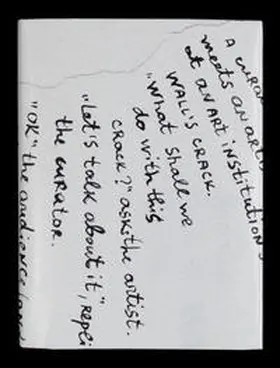 A
meets an
at an ART institution
WALL'S CRACK.
"What shall we
do with this
crack?" ask the artist.
"Let's talk about it", repli
the curator.
"OK" the audience